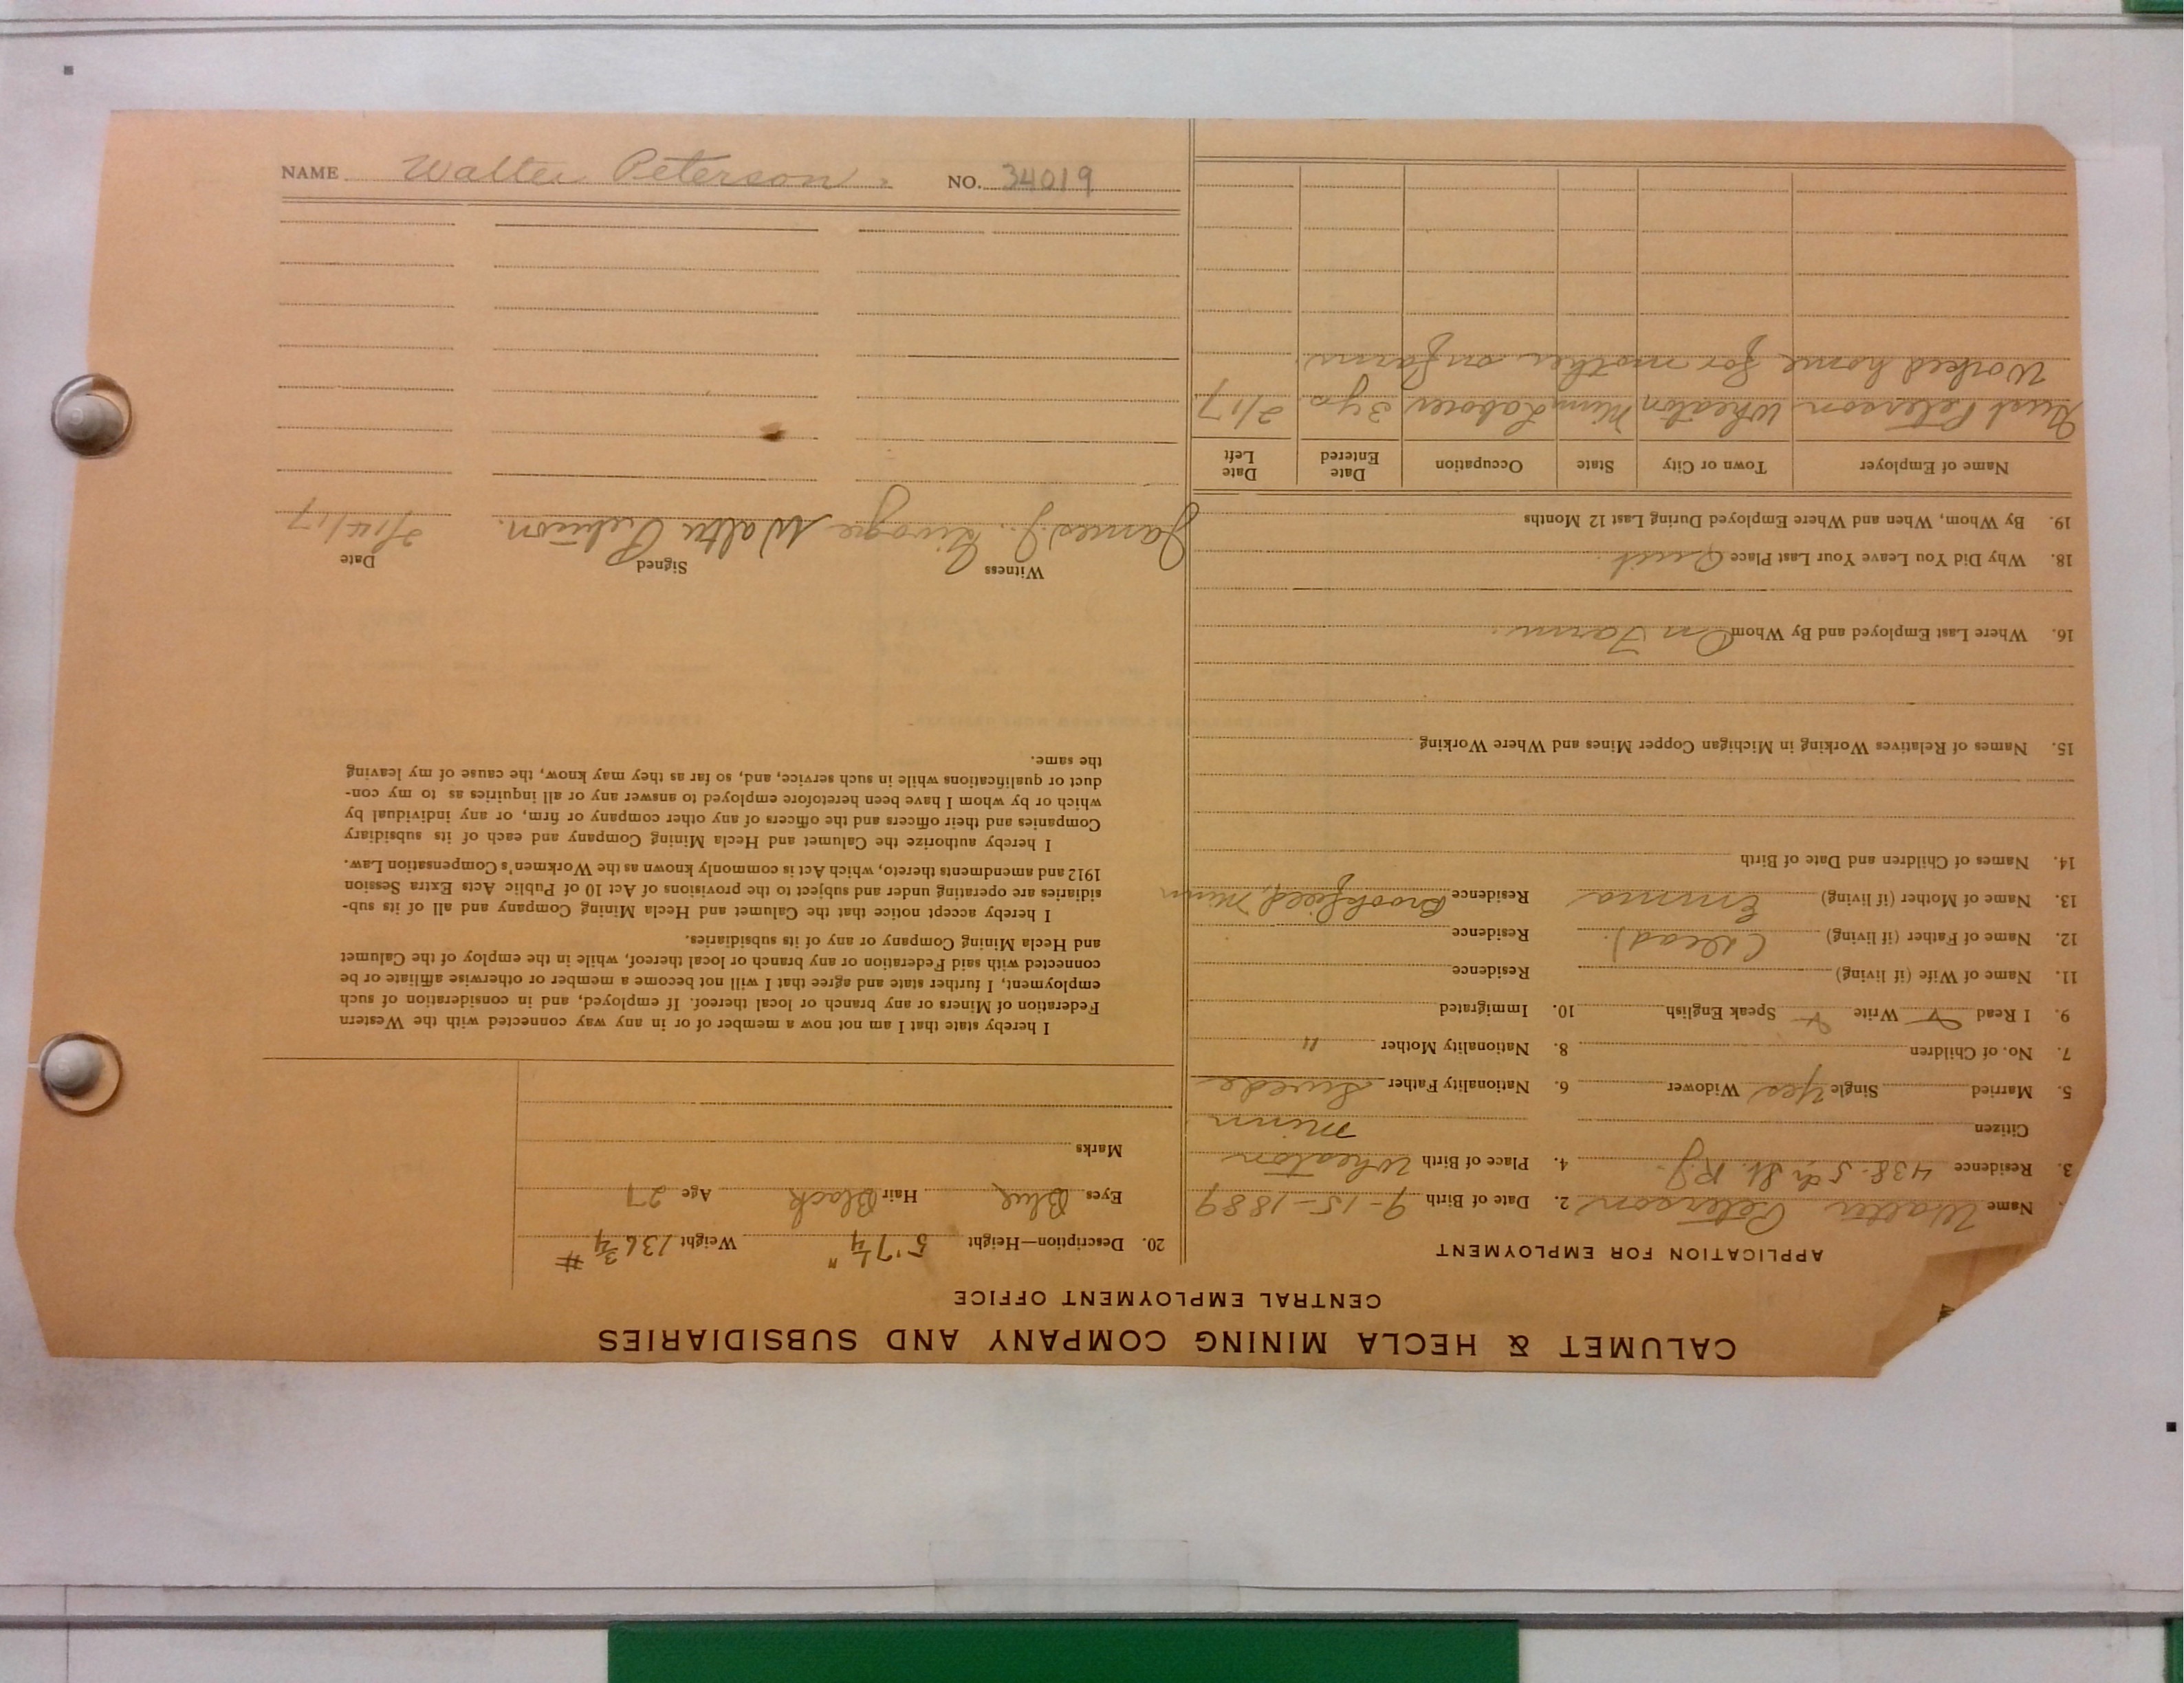 CALUMET & HECLA MINING COMPANY AND SUBSIDIARIES
CENTRAL EMPLOYMENT OFFICE
APPLICATION FOR EMPLOYMENT
Name Walter Peterson 2. Date of Birth 9-15-1889
3. Residence 438-5th St. R.J. 4. Place of Birth Wheaton
Citizen Minn
5. Married Single Yes Widower 6. Nationality Father Swede
7. No. of Children 8. Nationality Mother "
9. I Read Write Speak English 10. Immigrated
11. Name of Wife (if living) Residence
12. Name of Father (if living) (Dead). Residence
13. Name of Mother (if living) Emma Residence Brookfield, Minn
14. Names of Children and Date of Birth
15. Names of Relatives Working in Michigan Copper Mines and Where Working
16. Where Last Employed and By Whom On Farm.
18. Why Did You Leave Your Last Place Quit.
19. By Whom, When and Where Employed During Last 12 Months
Name of Employer Town or City State Occupation Date Entered Date Left
Peterson Wheaton Minn Laborer 3 yrs. 2/17
Worked home for mother on farm.
20. Description—Height 5'7 1/4" Weight 136 3/4 #
Eyes Blue Hair Black Age 27
Marks
I hereby state that I am not now a member of or in any way connected with the Western
Federation of Miners or any branch or local thereof. If employed, and in consideration of such
employment, I further state and agree that I will not become a member or otherwise affiliate or be
connected with said Federation or any branch or local thereof, while in the employ of the Calumet
and Hecla Mining Company or any of its subsidiaries.
I hereby accept notice that the Calumet and Hecla Mining Company and all of its sub-
sidiaries are operating under and subject to the provisions of Act 10 of Public Acts Extra Session
1912 and amendments thereto, which Act is commonly known as the Workmen's Compensation Law.
I hereby authorize the Calumet and Hecla Mining Company and each of its subsidiary
Companies and their officers and the officers of any other company or firm, or any individual by
which or by whom I have been heretofore employed to answer any or all inquiries as to my con-
duct or qualifications while in such service, and, so far as they may know, the cause of my leaving
the same.
Witness Signed Date
James J. Walter Peterson. 2/14/17
NAME Walter Peterson. NO. 34019